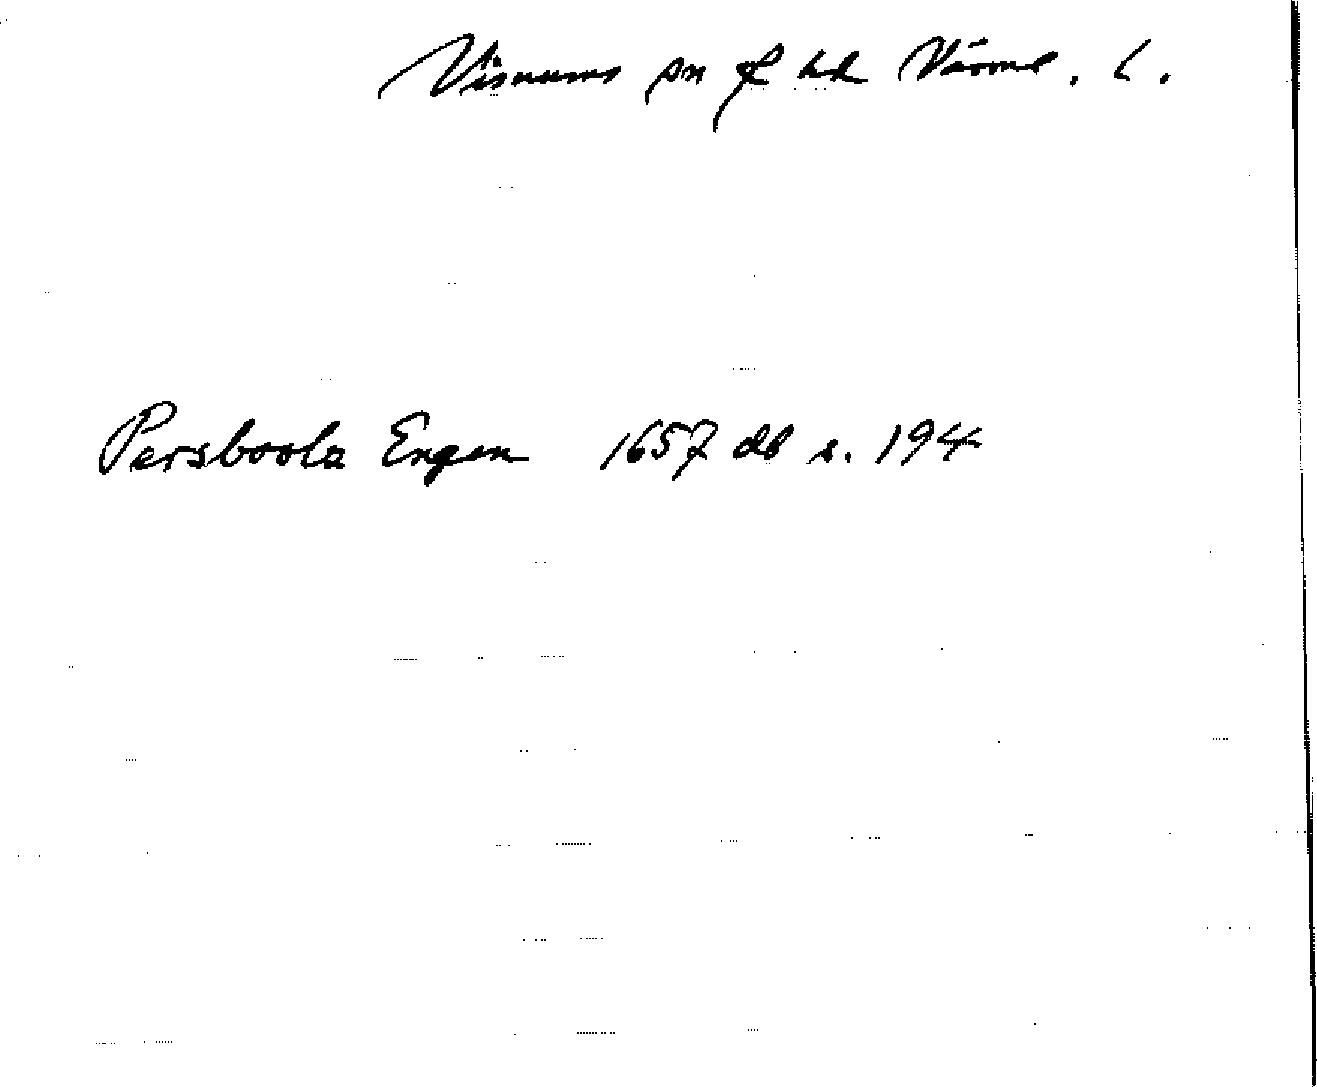 Visnums sn gl hd Värml. L.
Persboola Engen 1657 db s. 194